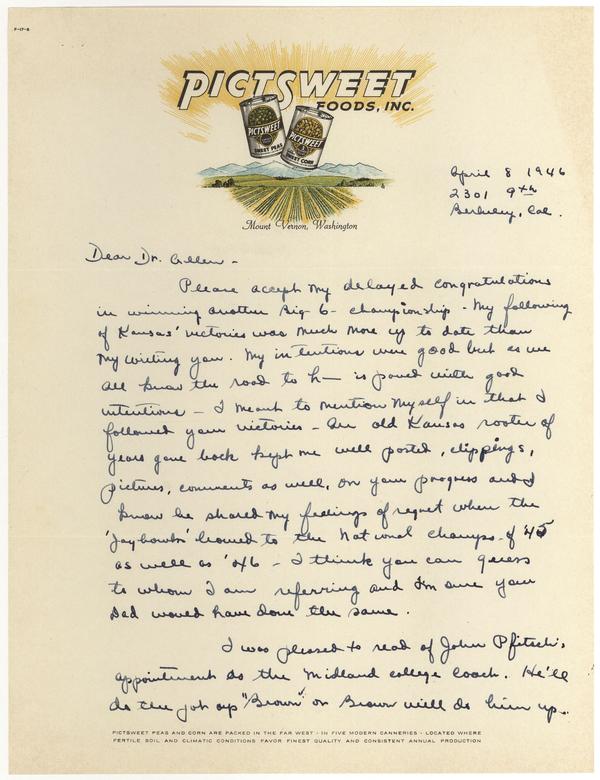 F-17-8
PICTSWEET
FOODS, INC.
PICTSWEET
SWEET PEAS
PICTSWEET
SWEET CORN
Mount Vernon, Washington
April 8 1946
2301 9th
Berkeley, Cal.
Dear Dr. Allen -
Please accept my delayed congratulations
in winning another Big-6- championship - My following
of Kansas' victories was much more up to date than
my writing you. My intentions were good but as we
all know the road to h— is paved with good
intentions - I meant to mention myself in that I
followed your victories - An old Kansas rooter of
years gone back kept me well posted, clippings,
pictures, comments as well, on your progress and I
know he shared my feelings of regret when the
'Jayhawks' bowed to the National champs of '45
as well as '46 - I think you can guess
to whom I am referring and I'm sure your
Dad would have done the same.
I was pleased to read of John Pfitsch's
appointment as the Midland college coach. He'll
do the job up "Brown" or Brown will do him up..
PICTSWEET PEAS AND CORN ARE PACKED IN THE FAR WEST - IN FIVE MODERN CANNERIES - LOCATED WHERE
FERTILE SOIL AND CLIMATIC CONDITIONS FAVOR FINEST QUALITY AND CONSISTENT ANNUAL PRODUCTION